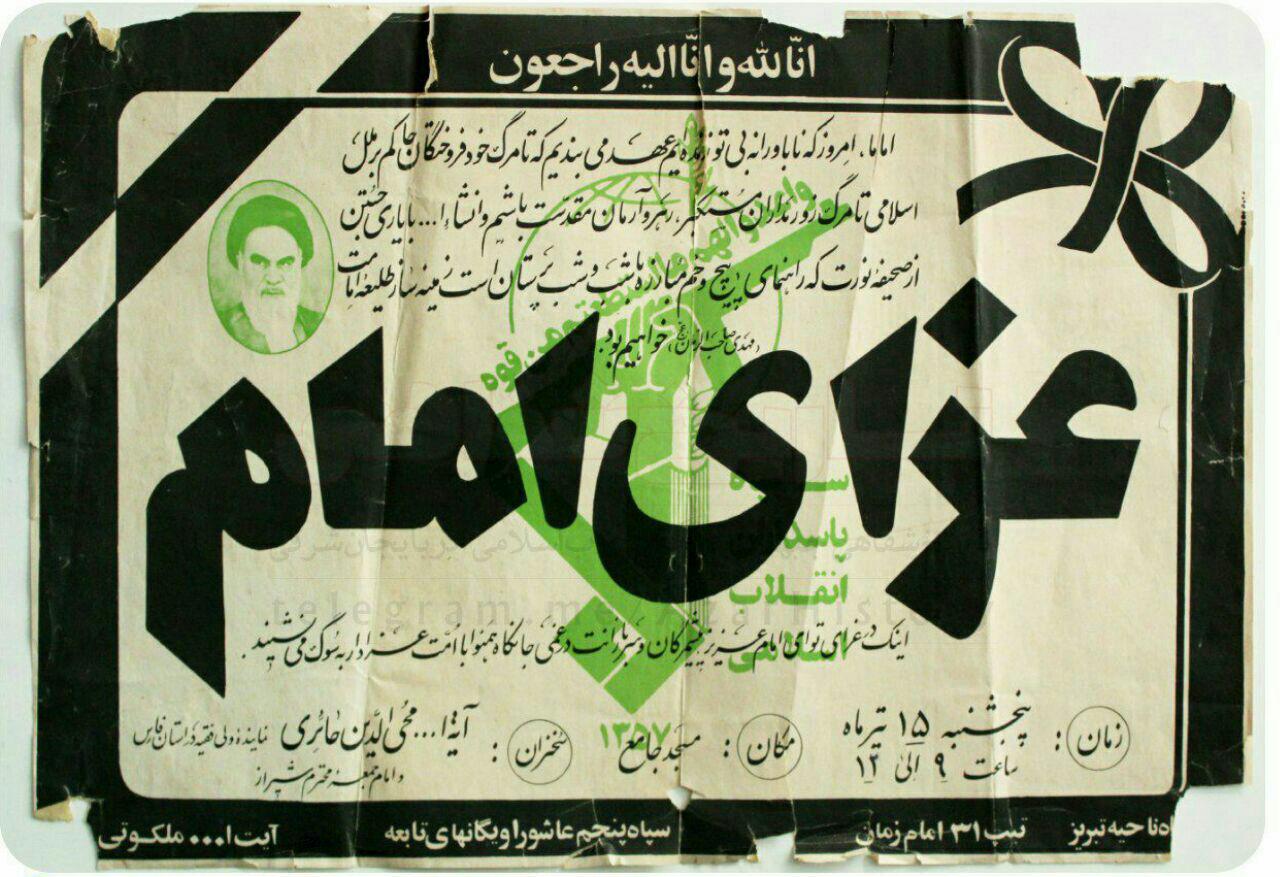 انّا للّه و انّا الیه راجعون
اماما، امروز که ناباورانه بی تو زنده‌ایم عهد می بندیم که تا مرگ خودفروختگان حاکم بر ملل
اسلامی تا مرگ زورمداران مستکبر، رهرو آرمان مقدّست باشیم و انشاء ا... با یاری جستن
از صحیفهٔ نورت که راهنمای پیچ و خم مبارزه با شب و شب پرستان است زمینه ساز طلیعهٔ امامت
(مهدی صاحب الزمان عج) خواهیم بود.
واعدوا لهم ما استطعتم من قوه
عزای امام
سپاه
پاسداران
انقلاب
اسلامی
۱۳۵۷
اینک در عزای تو ای امام عزیز پیشمرگان و سربازانت در غمی جانکاه همنوا با امّت عزادار به سوگ می نشینند.
زمان : پنجشنبه ۱۵ تیر ماه
ساعت ۹ الی ۱۲
مکان : مسجد جامع
سخنران : آیة ا... محی الدّین حائری نمایندهٔ ولی فقیه در استان فارس
و امام جمعهٔ محترم شیراز
اه ناحیه تبریز تیپ ۳۱ امام زمان سپاه پنجم عاشورا و یگانهای تابعه آیت ا... ملکوتی
telegram.me/